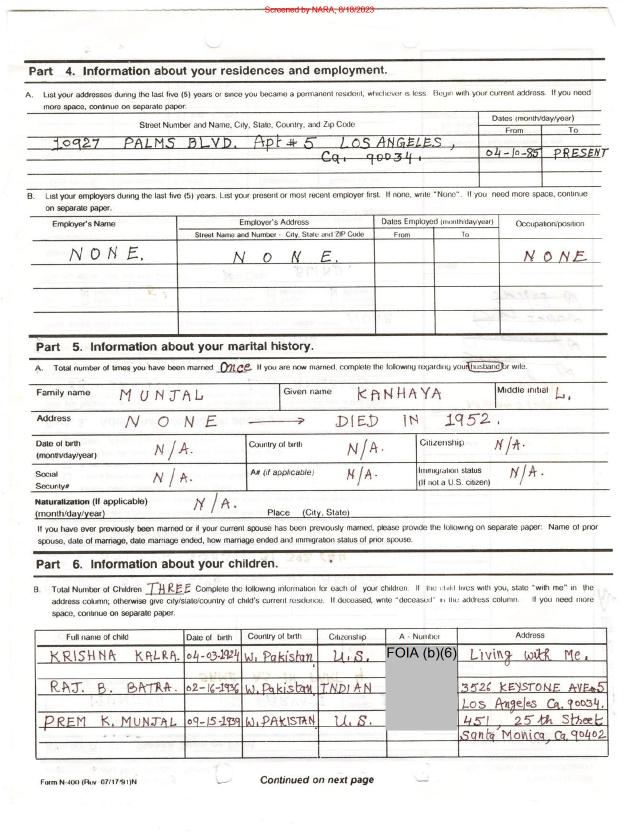 Screened by NARA, 8/18/2023
Part 4. Information about your residences and employment.
A. List your addresses during the last five (5) years or since you became a permanent resident, whichever is less. Begin with your current address. If you need
more space, continue on separate paper.
Street Number and Name, City, State, Country, and Zip Code
Dates (month/day/year)
From To
10927 PALMS BLVD. Apt # 5 LOS ANGELES,
Ca. 90034. 04-10-85 PRESENT
B. List your employers during the last five (5) years. List your present or most recent employer first. If none, write "None". If you need more space, continue
on separate paper.
Employer's Name Employer's Address Dates Employed (month/day/year) Occupation/position
Street Name and Number - City, State and ZIP Code From To
NONE. NONE. NONE
Part 5. Information about your marital history.
A. Total number of times you have been married Once. If you are now married, complete the following regarding your husband or wife.
Family name MUNJAL Given name KANHAYA Middle initial L.
Address NONE → DIED IN 1952.
Date of birth
(month/day/year) N/A. Country of birth N/A. Citizenship N/A.
Social
Security# N/A. A# (if applicable) N/A. Immigration status
(If not a U.S. citizen) N/A.
Naturalization (If applicable)
(month/day/year) N/A. Place (City, State)
If you have ever previously been married or if your current spouse has been previously married, please provide the following on separate paper: Name of prior
spouse, date of marriage, date marriage ended, how marriage ended and immigration status of prior spouse.
Part 6. Information about your children.
B. Total Number of Children THREE Complete the following information for each of your children. If the child lives with you, state "with me" in the
address column; otherwise give city/state/country of child's current residence. If deceased, write "deceased" in the address column. If you need more
space, continue on separate paper.
Full name of child Date of birth Country of birth Citizenship A - Number Address
KRISHNA KALRA. 04-03-1924 W. Pakistan. U.S. FOIA (b)(6) Living with Me.
RAJ. B. BATRA. 02-16-1936 W. Pakistan. INDIAN 3526 KEYSTONE AVE#5
Los Angeles Ca. 90034.
PREM K. MUNJAL 09-15-1939 W. PAKISTAN U.S. 451, 25th Street
Santa Monica, Ca. 90402
Form N-400 (Rev. 07/17/91)N Continued on next page